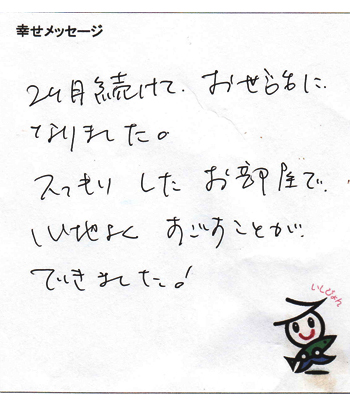 幸せメッセージ
2ヶ月続けて、お世話に
なりました。
スッキリ した お部屋で、
心地よく すごすことが
できました!
いしぴょん